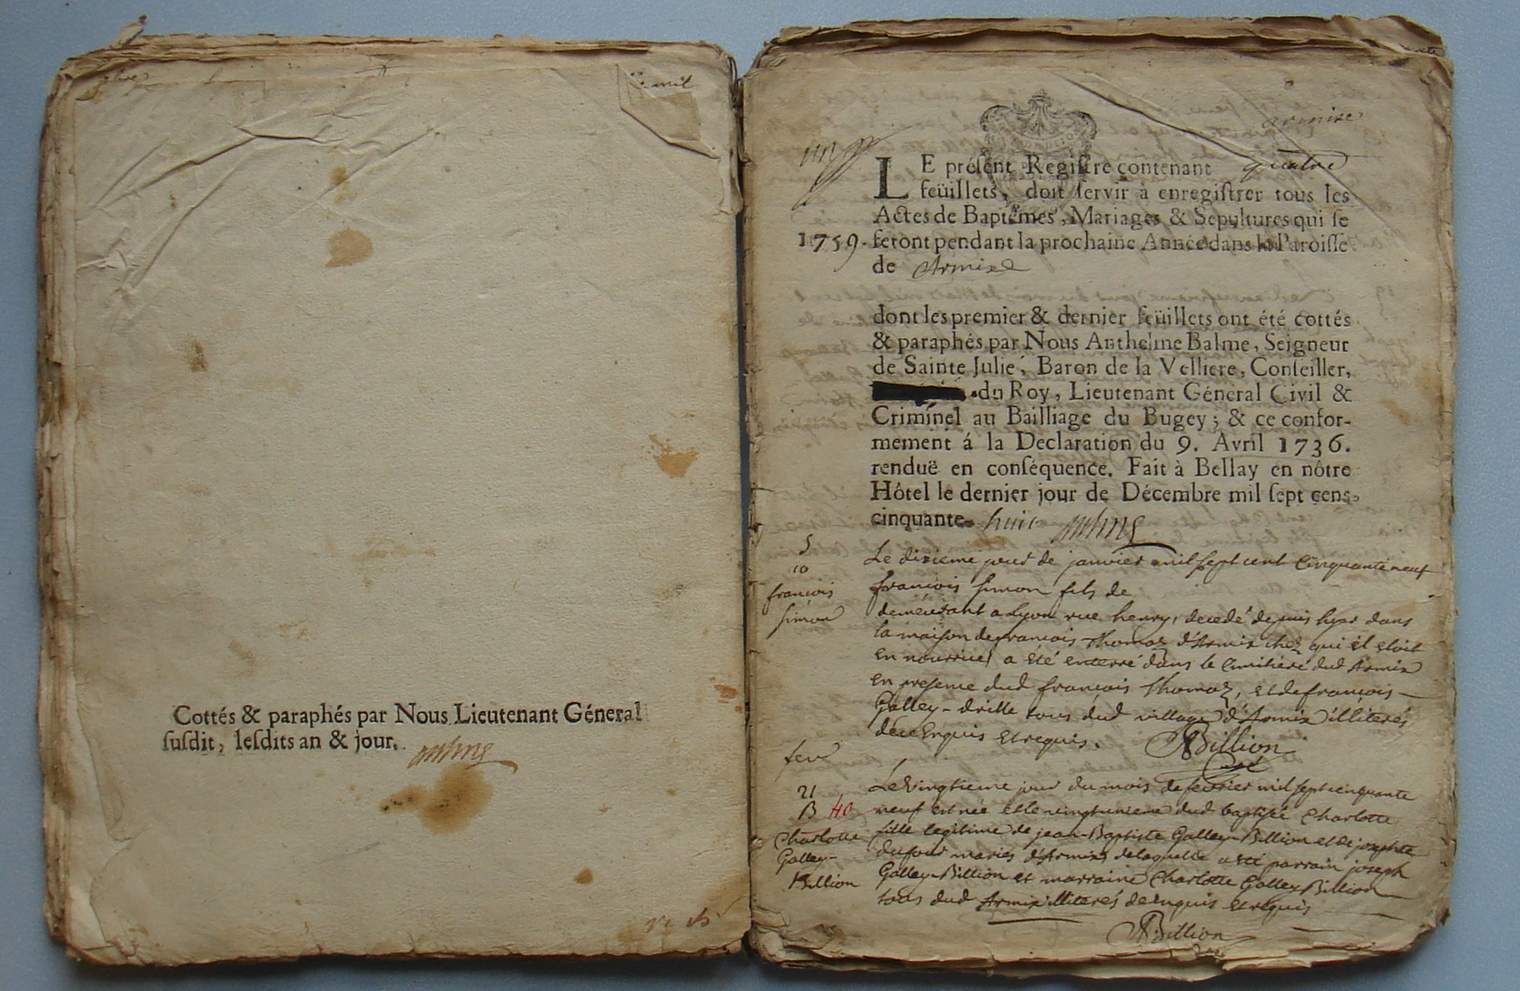 mil
Cottés & paraphés par Nous Lieutenant Géneral
susdit, lesdits an & jour.
armixe
LE présent Registre contenant quatre
feüillets, doit servir à enregistrer tous les
Actes de Baptêmes, Mariages & Sepultures qui se
1759. feront pendant la prochaine Année dans la Paroisse
de Armixe
dont les premier & dernier feüillets ont été cottés
& paraphés par Nous Anthelme Balme, Seigneur
de Sainte Julie, Baron de la Velliere, Conseiller,
du Roy, Lieutenant Géneral Civil &
Criminel au Bailliage du Bugey; & ce confor-
mement á la Declaration du 9. Avril 1736.
renduë en conséquence. Fait à Bellay en nôtre
Hôtel le dernier jour de Décembre mil sept cens
cinquante huit
5
10
francois
simon
Le dixieme jour de janvier mil sept cent cinquante neuf
francois simon fils de
demeurant a Lyon rue henry, decedé depuis hyer dans
la maison de francois Thomaz d'Armix chez qui il etoit
en nourrice, a eté enterré dans le cimitiere dud Armix
en presence dud francois Thomaz, et de francois
Galley-drille tous dud village d'Armix illiterés
de ce enquis et requis.
Billion
Curé
fevr
21
B 40
Charlotte
Galley-
Billion
Le vingtieme jour du mois de fevrier mil sept cinquante
neuf est née et le vingtunieme dud baptisée Charlotte
fille legitime de jean-Baptiste Galley-Billion et de josephte
dufour mariés d'Armix de laquelle a eté parrain joseph
Galley-Billion et marraine Charlotte Galley Billion
tous dud Armix illiterés de enquis et requis
Billion